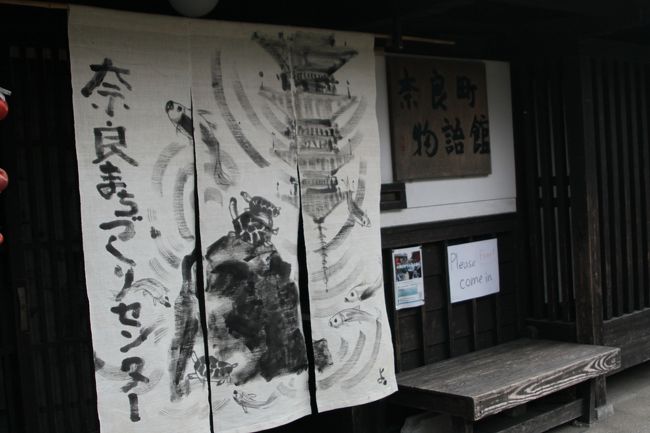 奈良まちづくりセンター
奈良町
物語館
Please
come in